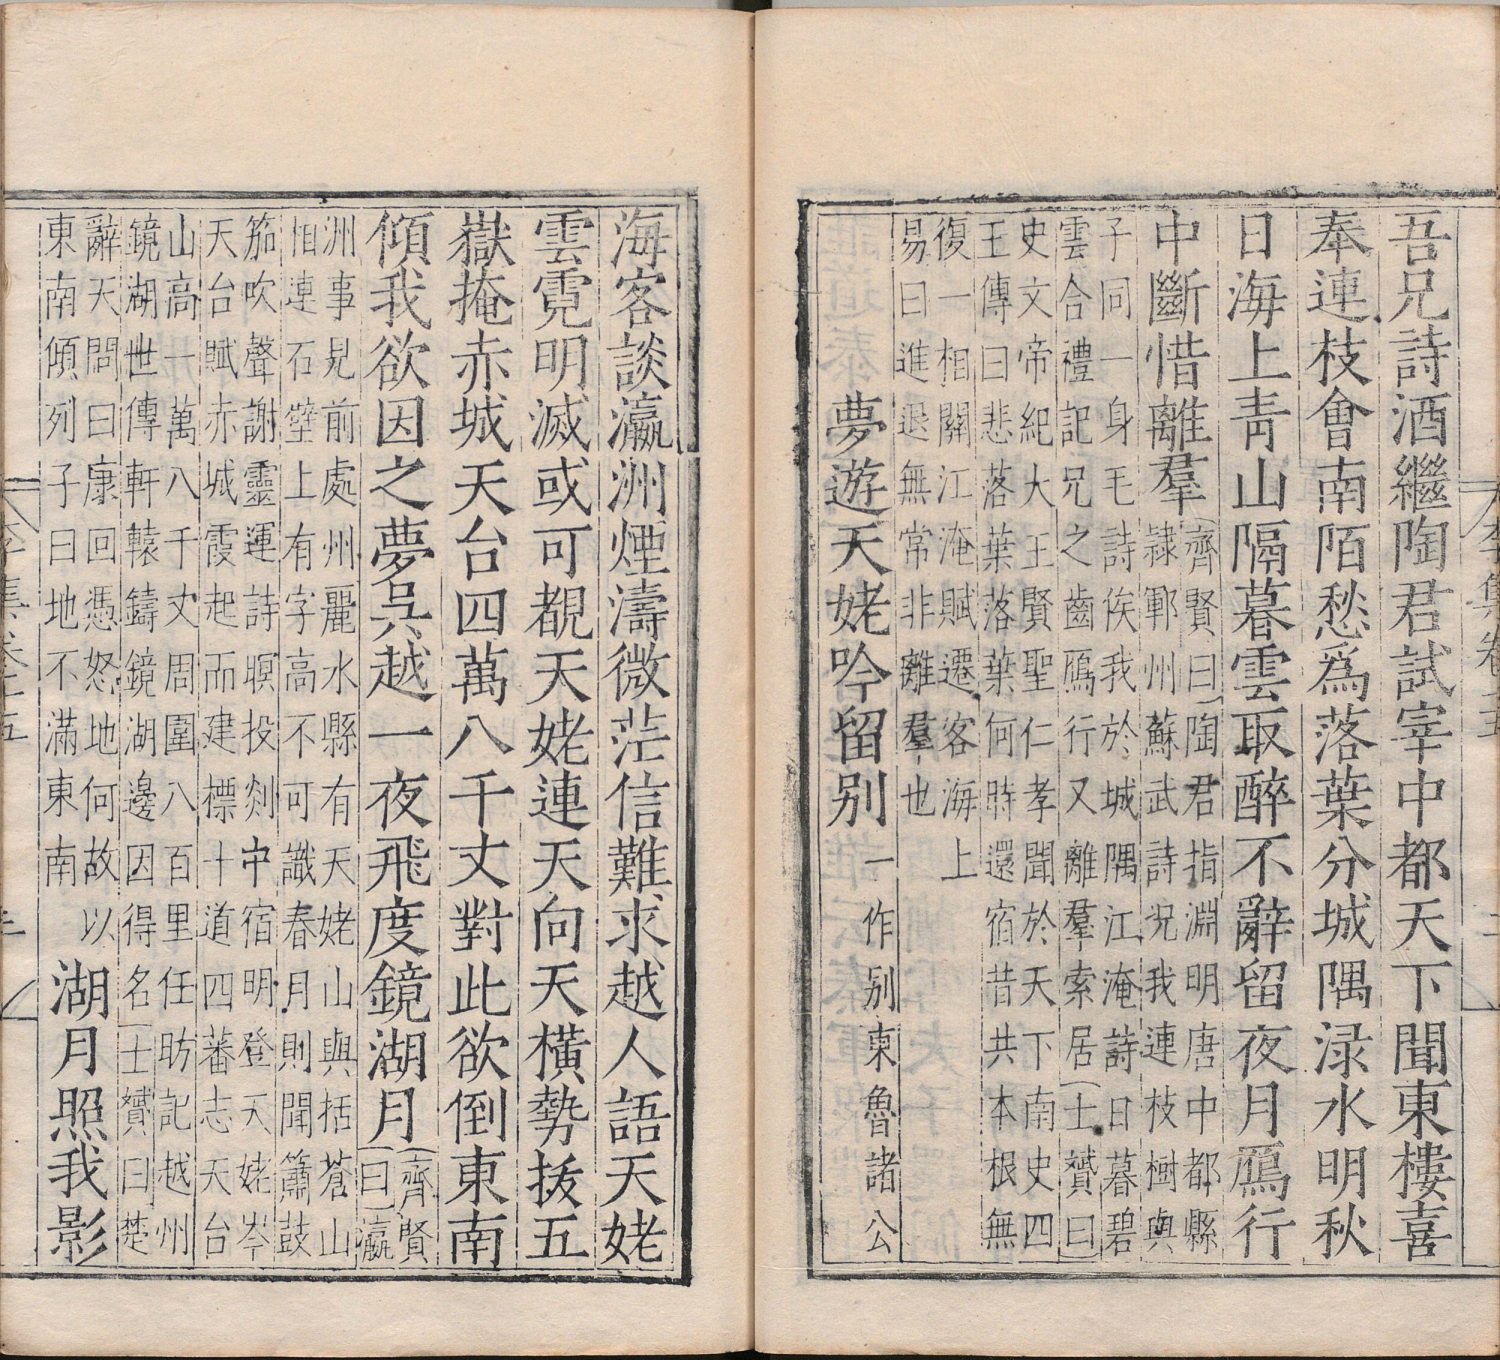 吾兄詩酒繼陶君試宰中都天下聞東樓喜
奉連枝會南陌愁爲落葉分城隅淥水明秋
日海上青山隔暮雲取醉不辭留夜月鴈行
中斷惜離羣
齊賢曰陶君指淵明唐中都縣
隸鄆州蘇武詩況我連枝樹與
子同一身毛詩俟我於城隅江淹詩日暮碧
雲合禮記兄之齒鴈行又離羣索居士贇曰
史文帝紀大王賢聖仁孝聞於天下南史四
王傳曰悲落葉落葉何時還宿昔共本根無
復一相關江淹賦遷客海上
易曰進退無常非離羣也
夢遊天姥吟留别
一作别東魯諸公
海客談瀛洲煙濤微茫信難求越人語天姥
雲霓明滅或可覩天姥連天向天橫勢拔五
嶽掩赤城天台四萬八千丈對此欲倒東南
傾我欲因之夢吳越一夜飛度鏡湖月
齊賢
曰瀛
洲事見前處州麗水縣有天姥山與括蒼山
相連石壁上有字高不可識春月則聞簫鼓
笳吹聲謝靈運詩暝投剡中宿明登天姥岑
天台賦赤城霞起而建標十道四蕃志天台
山高一萬八千丈周圍八百里任昉記越州
鏡湖世傳軒轅鑄鏡湖邊因得名士贇曰楚
辭天問曰康回憑怒地何故以
東南傾列子曰地不滿東南
湖月照我影